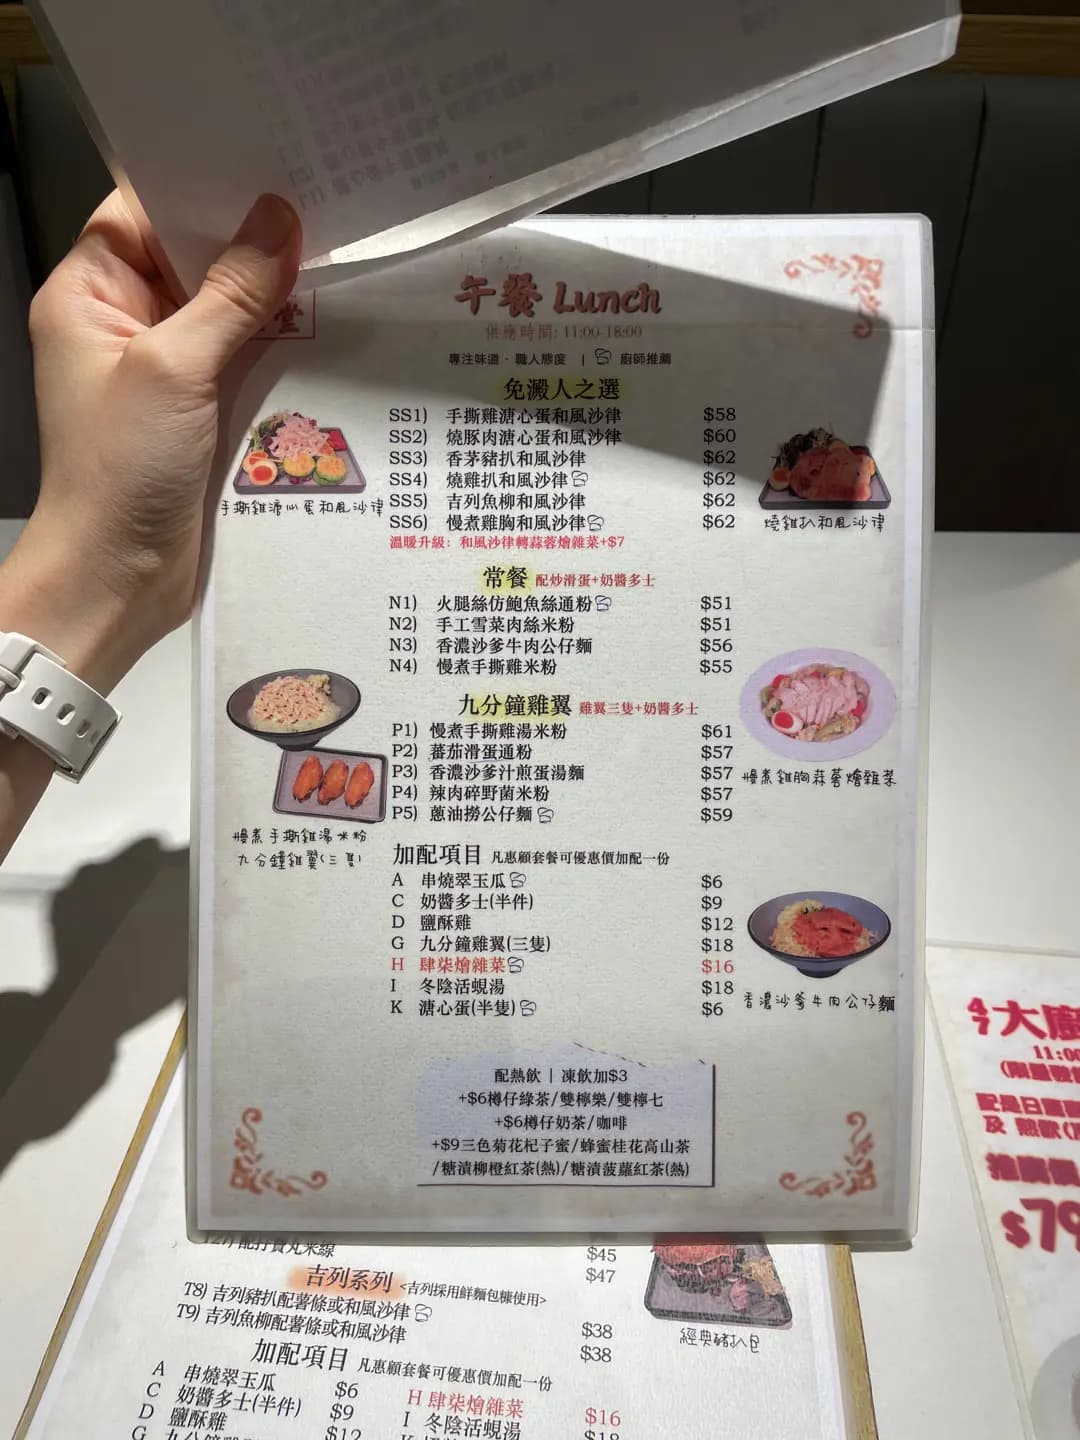 堂
午餐 Lunch
供應時間: 11:00-18:00
專注味道 · 職人態度 | 廚師推薦
免澱人之選
SS1) 手撕雞溏心蛋和風沙律 $58
SS2) 燒豚肉溏心蛋和風沙律 $60
SS3) 香茅豬扒和風沙律 $62
SS4) 燒雞扒和風沙律 $62
SS5) 吉列魚柳和風沙律 $62
SS6) 慢煮雞胸和風沙律 $62
溫暖升級: 和風沙律轉蒜蓉燴雜菜+$7
手撕雞溏心蛋和風沙律
燒雞扒和風沙律
常餐 配炒滑蛋+奶醬多士
N1) 火腿絲仿鮑魚絲通粉 $51
N2) 手工雪菜肉絲米粉 $51
N3) 香濃沙爹牛肉公仔麵 $56
N4) 慢煮手撕雞米粉 $55
九分鐘雞翼 雞翼三隻+奶醬多士
P1) 慢煮手撕雞湯米粉 $61
P2) 蕃茄滑蛋通粉 $57
P3) 香濃沙爹汁煎蛋湯麵 $57
P4) 辣肉碎野菌米粉 $57
P5) 蔥油撈公仔麵 $59
慢煮雞胸蒜蓉燴雜菜
慢煮手撕雞湯米粉
九分鐘雞翼(三隻)
加配項目 凡惠顧套餐可優惠價加配一份
A 串燒翠玉瓜 $6
C 奶醬多士(半件) $9
D 鹽酥雞 $12
G 九分鐘雞翼(三隻) $18
H 肆柒燴雜菜 $16
I 冬陰活蜆湯 $18
K 溏心蛋(半隻) $6
香濃沙爹牛肉公仔麵
配熱飲 | 凍飲加$3
+$6樽仔綠茶/雙檸樂/雙檸七
+$6樽仔奶茶/咖啡
+$9三色菊花杞子蜜/蜂蜜桂花高山茶
/糖漬柳橙紅茶(熱)/糖漬菠蘿紅茶(熱)
米線 $45
$47
吉列系列 <吉列採用鮮麵包糠使用>
T8) 吉列豬扒配薯條或和風沙律 $38
T9) 吉列魚柳配薯條或和風沙律 $38
經典豬扒包
加配項目 凡惠顧套餐可優惠價加配一份
A 串燒翠玉瓜 $6
C 奶醬多士(半件) $9
D 鹽酥雞 $12
G
H 肆柒燴雜菜 $16
I 冬陰活蜆湯 $18
47大廚
11:00
(限量
配是日
及 熱飲(
推廣價
$79